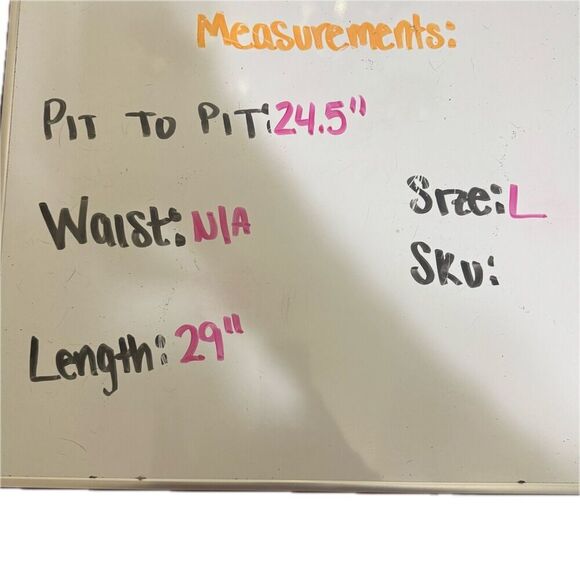 Measurements:
PIT TO PIT: 24.5"
Waist: N/A
Size: L
SKU:
Length: 29"